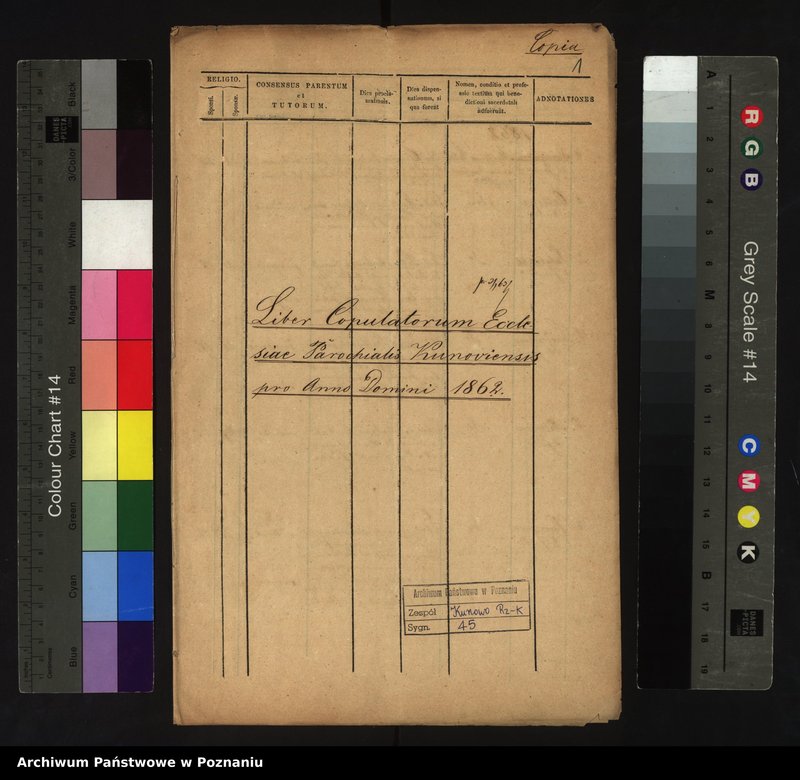 Copia
1
RELIGIO.
Sponsi.
Sponsae.
CONSENSUS PARENTUM
et
TUTORUM.
Dies procla-
mationis.
Dies dispen-
sationum, si
qua fuerit
Nomen, conditio et profe-
ssio testium qui bene-
dictioni sacerdotali
adfuerunt.
ADNOTATIONES
Liber Copulatorum Eccle
siae Parochialis Kunoviensis
pro Anno Domini 1862.
Archiwum Państwowe w Poznaniu
Zespół Kunowo Rz-K
Sygn. 45
Colour Chart #14
Black
3/Color
White
Magenta
Red
Yellow
Green
Cyan
Blue
Centimetres
DANES
PICTA
Grey Scale #14
R
G
B
C
M
Y
K
A
1
2
3
4
5
6
M
8
9
10
11
12
13
14
15
B
17
18
19
DANES
PICTA
Archiwum Państwowe w Poznaniu